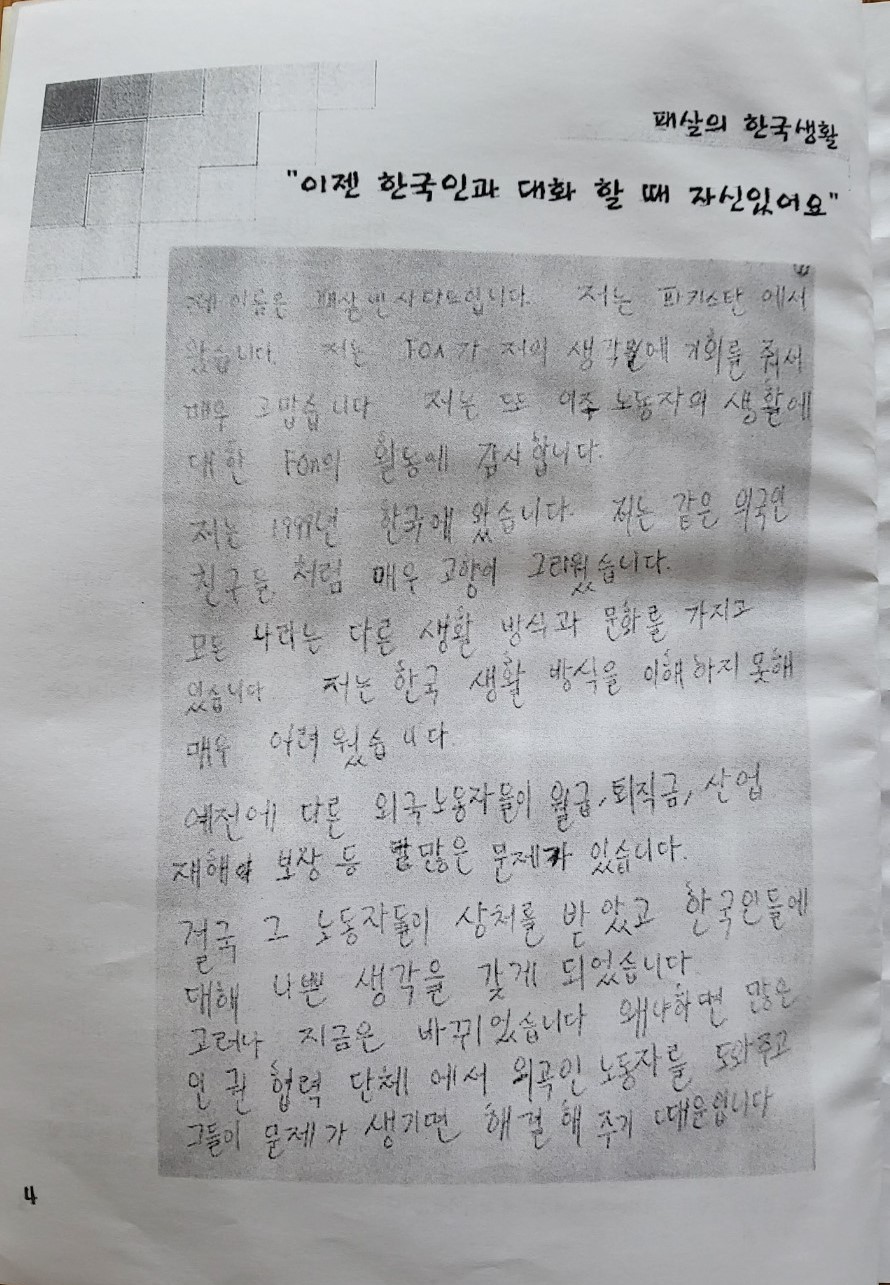 패살의 한국생활
"이젠 한국인과 대화 할 때 자신있어요"
제 이름은 패살 입니다. 저는 파키스탄 에서
왔습니다. 저는 가 저의 생각 에 기회를 줘서
매우 고맙습니다 저는 또 이주 노동자의 생활에
대한 FOn의 활동에 감사합니다.
저는 한국에 왔습니다. 저는 같은 외국인
친구들 처럼 매우 고향이 그리웠습니다.
모든 나라는 다른 생활 방식과 문화를 가지고
있습니다 저는 한국 생활 방식을 이해하지 못해
매우 어려웠습니다.
예전에 다른 외국노동자들이 월급, 퇴직금, 산업
재해 보상 등 많은 문제가 있습니다.
결국 그 노동자들이 상처를 받았고 한국인들에
대해 나쁜 생각을 갖게 되었습니다
고러나 지금은 바뀌었습니다 왜냐하면 많은
인권 협력 단체에서 외국인 노동자를 도와주고
그들이 문제가 생기면 해결해 주기 때문입니다
4